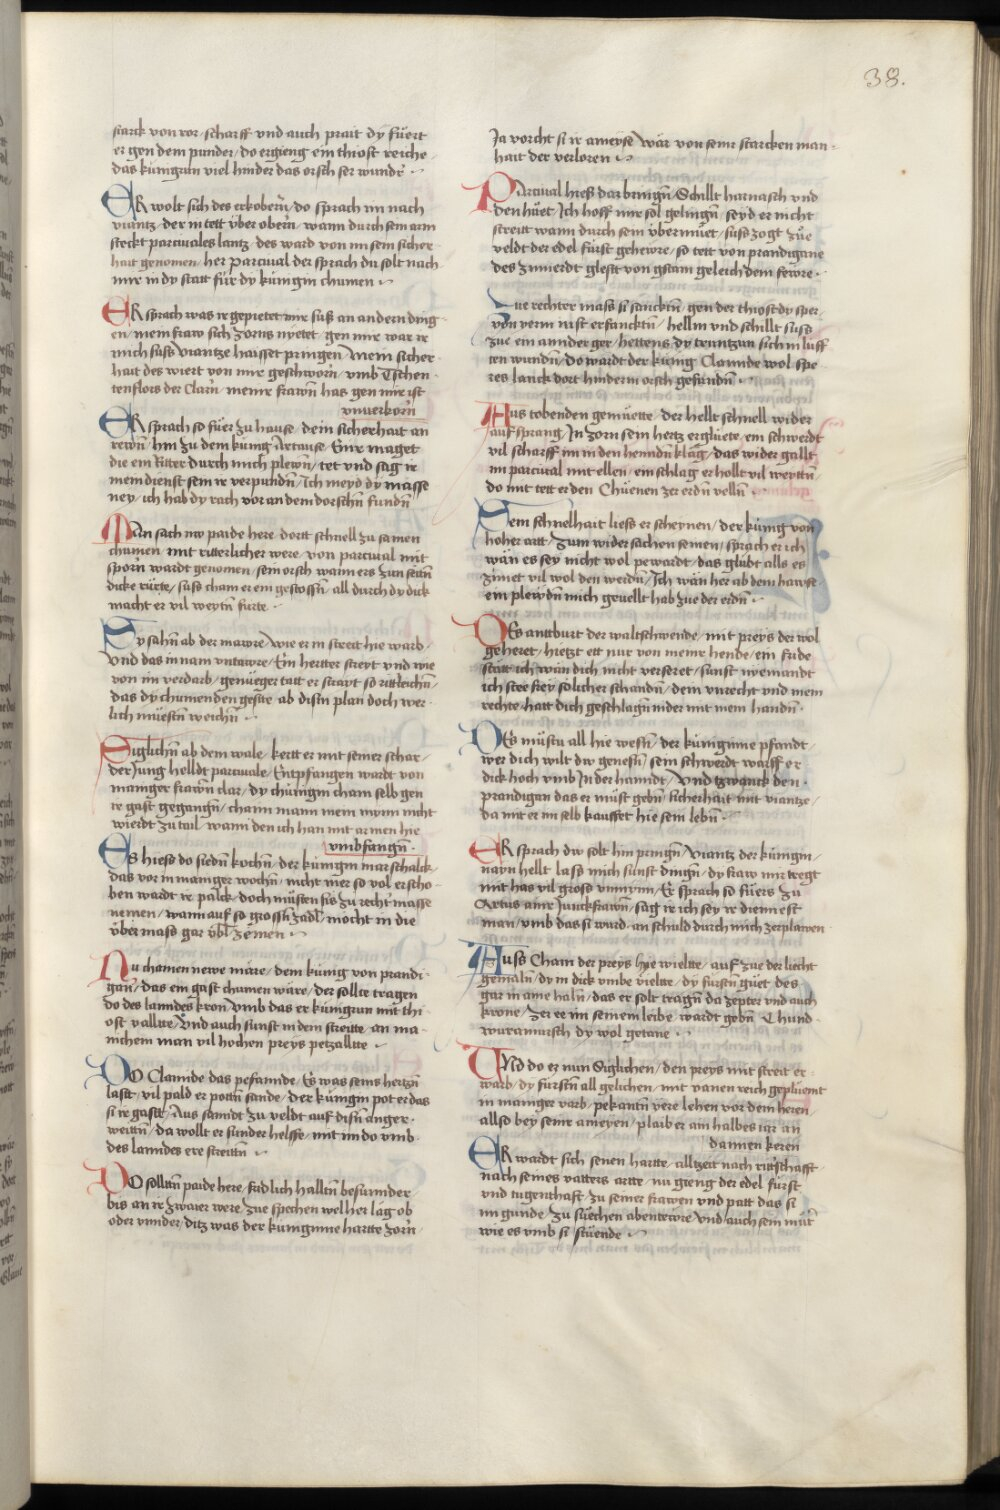 38.
starck von ror scharff vnd auch prait dy füert
er gen dem punder do ergieng ein thiost reiche
das küngrun viel hinder das orsch ser wundt
ER wolt sich des erkobern do sprach im nach
viantz der in tett über obern wann durch sein arm
steckt parcivales lantz des ward von im sein sicher
hait genomen her parcival der sprach du solt nach
mir in dy statt für dy künigin chumen
ER sprach was ir gepietet mir süß an andern ding
en mein fraw sich zorns nyetet gen mir war ir
mich süst viantze haisset pringen Mein sicher
hait des wiert von mir geschworn vmb Tschen
tenflors der Clarn meine frawn has gen mir ist
vnuerkorn
ER sprach so füer zu hause dein sicherhait an
rewn hin zu dem künig Artause Einr maget
die ein Ritter durch mich plewn tet vnd sag ir
mein dienst sein ir verpundn Ich meyd dy masse
ney ich hab dy rach vor an dem dorschn fundn
MAn sach nw paide here dortt schnell zu samen
chumen mit ritterlicher were von parcival mit
sporn wardt genomen sein orsch wann ers zun seitn
dicke rürte suss cham er ein gestossn all durch dy dick
macht er vil weytn fürte
Sy sahn ab der mawre wie er in streit hie warb
Vnd das in nam vntawre Ein hertter streyt vnd wie
von im verdarb genüeger tatt er strayt so ritterlichn
das dy chumenden geste ab disen plan doch wer
lich müestn weichn
Siglichn ab dem wale kertt er mit seiner schar
der Jung helldt parcivale Entpfangen wardt von
maniger frawn clar dy chünigin cham selb gen
ir gast gegangn chain mann mein mynn nicht
wierdt zu tail wann den ich han mit armen hie
vmbfangn
ES hiess do siedn kochn der künigin marschalck
das vor in maniger wochn nicht mer so vol erscho
ben wardt ir palck doch müsten süs zu recht masse
nemen wann auf so grossn zadl mocht in die
über mass gar übl zemen
Nu chamen newe märe dem künig von prandi
gan das ein gast chumen wäre der sollte tragen
do des lanndes kron vmb das er küngrun mit thi
ost vallte Vnd auch sunst in dem streitte an ma
nichem man vil hochen preys petzallte
DO Clamide das pefannde Es was seins hertzn
last vil pald er pottn sande der künigin pot er das
si ir gastt Aus sanndt zu veldt auf disn anger
weittn da wollt er sunder helffe mit im do vmb
des lanndes ere streittn
DO solltn paide here fridlich halltn besunnder
bis an ir zwaier were zue spechen welher lag ob
oder vnnder ditz was der künginne hartte zorn
Ja vorcht si ir ameyse wär von seinr starcken man
hait der verloren
PArcival hieß dar bringn Schillt harnasch vnd
den hüet Ich hoff mir sol gelingn seyd er nicht
streitt wann durch sein übermüet suss zogt zue
veldt der edel fürst geheure so tett von prandigane
des zimierdt glestt von gstain geleich dem fewre
Zue rechter mass si sancktn gen der thiost dy sper
von verm rust er sancktn hellm vnd schillt suss
zue ein annder ger hettens dy trunntzun sich in lüff
ten wundn do wardt der künig Clamide wol spe
res lanck dort hinderm orsch gefundn
AUs tobenden gemüette der hellt schnell wider
auf sprang In zorn sein hertz erglüete ein schwerdt
vil scharff im in den henndn klag das wider gallt
im parcival mit ellen ein schlag er hollt vil weyttn
do mit tett er den Chüenen zer erdn velln
Dem schnelhait liess er scheynen der künig von
hoher artt zum widersachen seinen sprach er ich
wän es sey nicht wol pewardt das glübt alls es
zimet vil wol den werdn Ich wän her ab dem hawse
ein pleydn mich gevellt hab zue der erdn
DEs anttburt der waltschwende mit preys der wol
geheret hietzt ett nur von meinr hende ein fride
statt ich wän dich nicht verseret sunst nyemandt
ich stee frey sölicher schandn dem vnrecht vnd mein
rechte hatt dich geschlagn nider mit mein handn
DEs müstu all hie wesn der künginne pfandt
wer dich wilt dw genesn sein schwerdt warff er
dick hoch vmb In der hanndt Vnd tzwanck den
prandigan das er müst gebn sicherhait mit viantze
da mit er im selb kauffet hie sein lebn
ER sprach dw solt hin pringn viantz der künigin
nayn hellt lass mich sunst dingn dy fraw mir tregt
mit has vil gross vnmynn Er sprach so füers zu
Artus ainr Junckfrawn sag ir ich sey ir diennest
man vmb das si ward an schuld durch mich zerplawen
AUss Cham der preys hie wielte auf zue der liecht
gemaln dy in dick vmbe vielte dy fürstn güet des
gar in ame haln das er solt tragn da zepter vnd auch
krone zer ee im seinem leibe wardt gebn Chund
wiramursch dy wol getane
UNd do er nun Siglichen den preys mit streit er
warb dy fürstn all gelichen mit vanen reich geplüemt
in maniger varb pekantn vere lehen vor dem heren
allso bey seinr ameyen plaib er ain halbes iar an
dannen keren
ER wardt sich senen hartte alltzeit nach rittschafft
nach seines vatters artte nu gieng der edel fürst
vnd tugenthaft zu seiner frawen vnd patt das si
im gunde zu süechen abentewre Vnd auch sein müt
wie es vmb si stüende